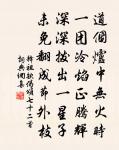 道個爐中無火時
一團冷焰正騰輝
深深拔出一星子
未免翻成節外枝
釋祖欽偈頌七十二首
詞典網集